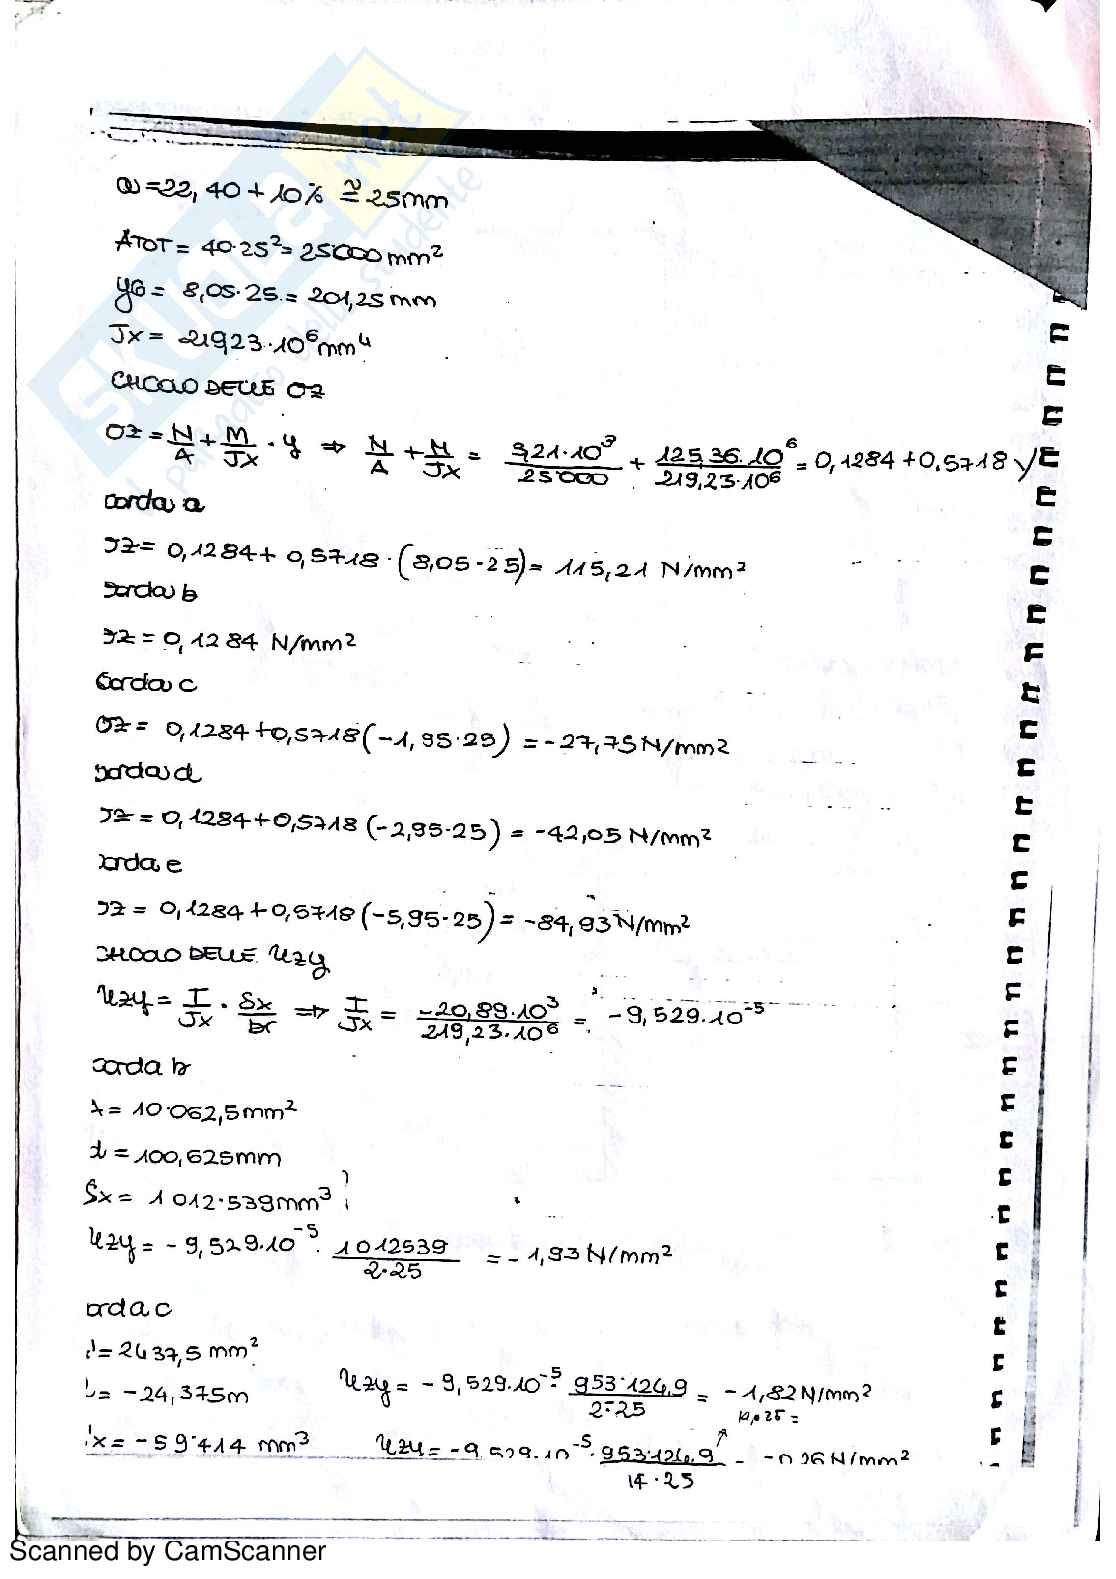 a=22,40+10% ≅ 25mm
ATOT= 40·25²= 25000 mm²
yG= 8,05·25= 201,25 mm
Jx= 219,23·10⁶ mm⁴
CALCOLO DELLE σz
σz = N/A + M/Jx · y ⇒ N/A + M/Jx = 3,21·10³/25000 + 125,36·10⁶/219,23·10⁶ = 0,1284+0,5718 y
corda a
σz= 0,1284+ 0,5718·(8,05·25)= 115,21 N/mm²
corda b
σz= 0,1284 N/mm²
corda c
σz= 0,1284+0,5718(-1,95·25) = -27,75 N/mm²
corda d
σz= 0,1284+0,5718(-2,95·25) = -42,05 N/mm²
corda e
σz= 0,1284+0,5718(-5,95·25)= -84,93 N/mm²
CALCOLO DELLE τzy
τzy= T/Jx · Sx/b ⇒ T/Jx = -20,89·10³/219,23·10⁶ = -9,529·10⁻⁵
corda b
A= 10·062,5mm²
d=100,625mm
Sx= 1012·539mm³
τzy= -9,529·10⁻⁵· 1012539/2·25 = -1,93 N/mm²
corda c
A= 2437,5 mm²
d= -24,375m
Sx= -59·414 mm³
τzy= -9,529·10⁻⁵· 953·124,9/2·25 = -1,82 N/mm²
τzy= -9,529·10⁻⁵· 953·124,9/14·25 = -0,26 N/mm²
SKUOLA.net
Scanned by CamScanner